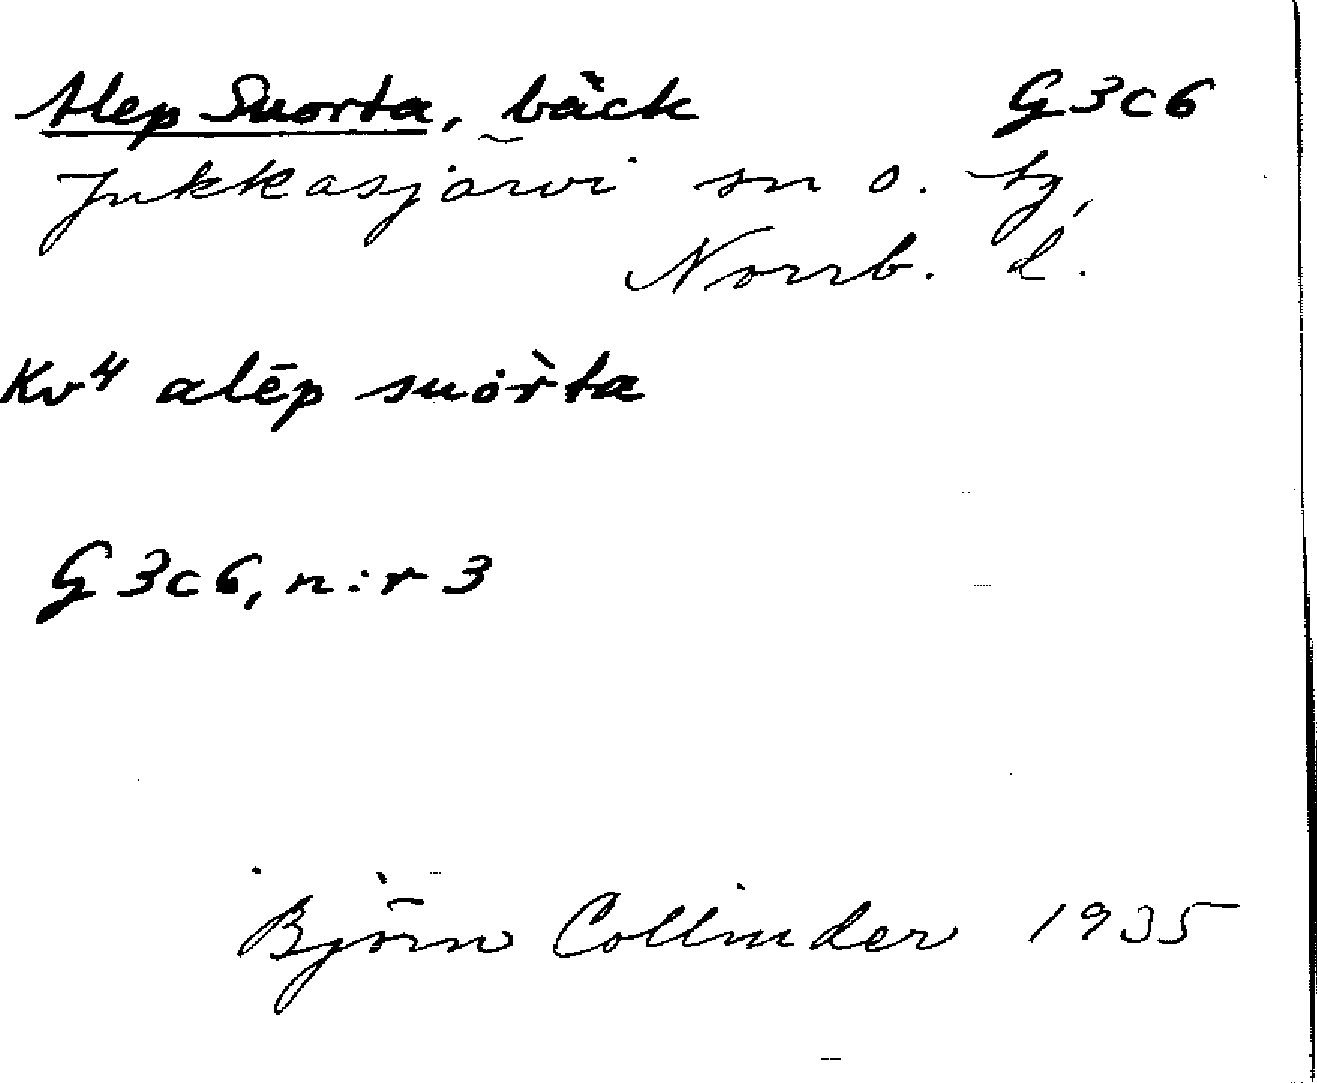 Alep Suorta, bäck G3c6
Jukkasjärvi sn o. tg,
Norrb. l.
Kv⁴ alēp suòr̀ta
G3c6, n:r 3
Björn Collinder 1935